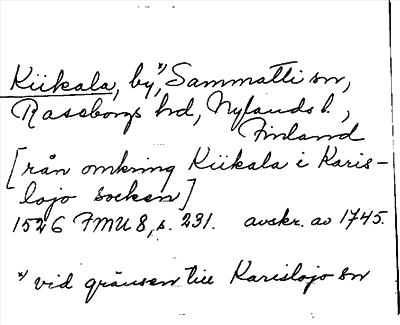 Kiikala, by,*) Sammatti sn,
Raseborgs hd, Nylands l.,
Finland
[rån omkring Kiikala i Karis-
lojo socken]
1526 FMU 8, s. 231. avskr. av 1745.
*) vid gränsen till Karislojo sn